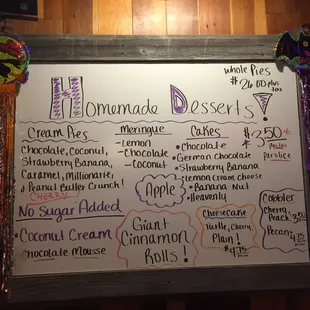 whole Pies
$26.00 plus
tax
Homemade Desserts!
Cream Pies
Chocolate, Coconut,
Strawberry Banana,
Caramel, Millionarie,
& Peanut Butter Crunch!
CHERRY
No Sugar Added
• Coconut Cream
Chocolate Mousse
Meringue
-Lemon
-Chocolate
-Coconut
Apple
Giant
Cinnamon
Rolls!
Cakes
• Chocolate
• German Chocolate
• Strawberry
• Lemon Cream Cheese
• Banana Nut
• Heavenly
*$3.50*
per slice
Cheesecake
Turtle, Cherry,
Plain!
$4.75
Cobbler
Cherry,
Peach 3.50
Pecan
4.75